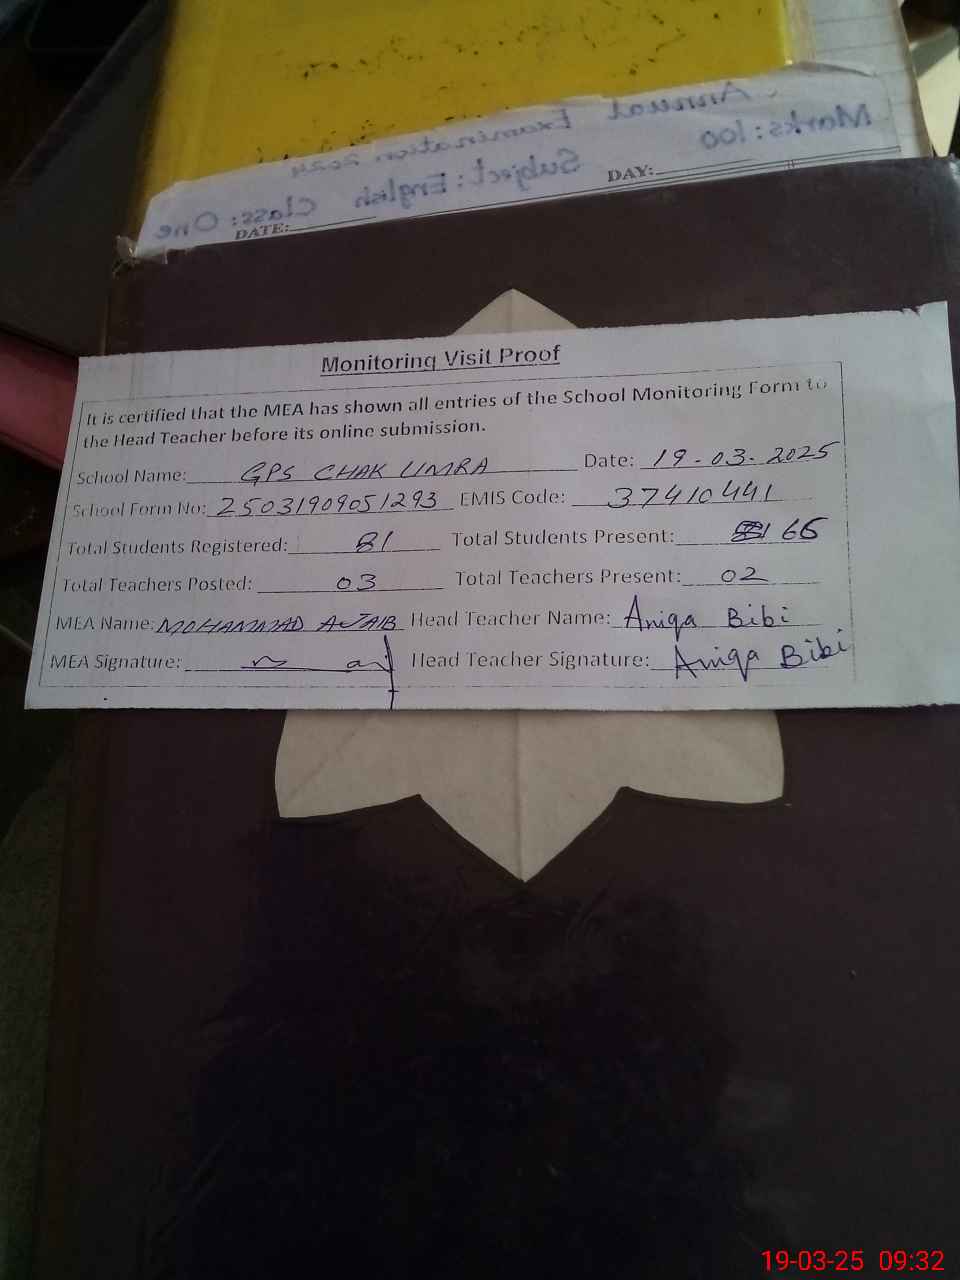 Annual Examination 2024
Marks: 100 Subject: English Class: One
DAY:
DATE:
Monitoring Visit Proof
It is certified that the MEA has shown all entries of the School Monitoring Form to
the Head Teacher before its online submission.
School Name: GPS CHAK UMRA Date: 19-03-2025
School Form No: 25031909051293 EMIS Code: 37410441
Total Students Registered: 81 Total Students Present: 66
Total Teachers Posted: 03 Total Teachers Present: 02
MEA Name: MOHAMMAD AJAIB Head Teacher Name: Aniqa Bibi
MEA Signature: Head Teacher Signature: Aniqa Bibi
19-03-25 09:32